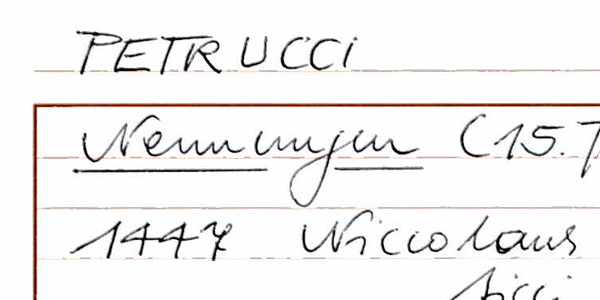 PETRUCCI
Nennungen (15.
1447 Niccolaus